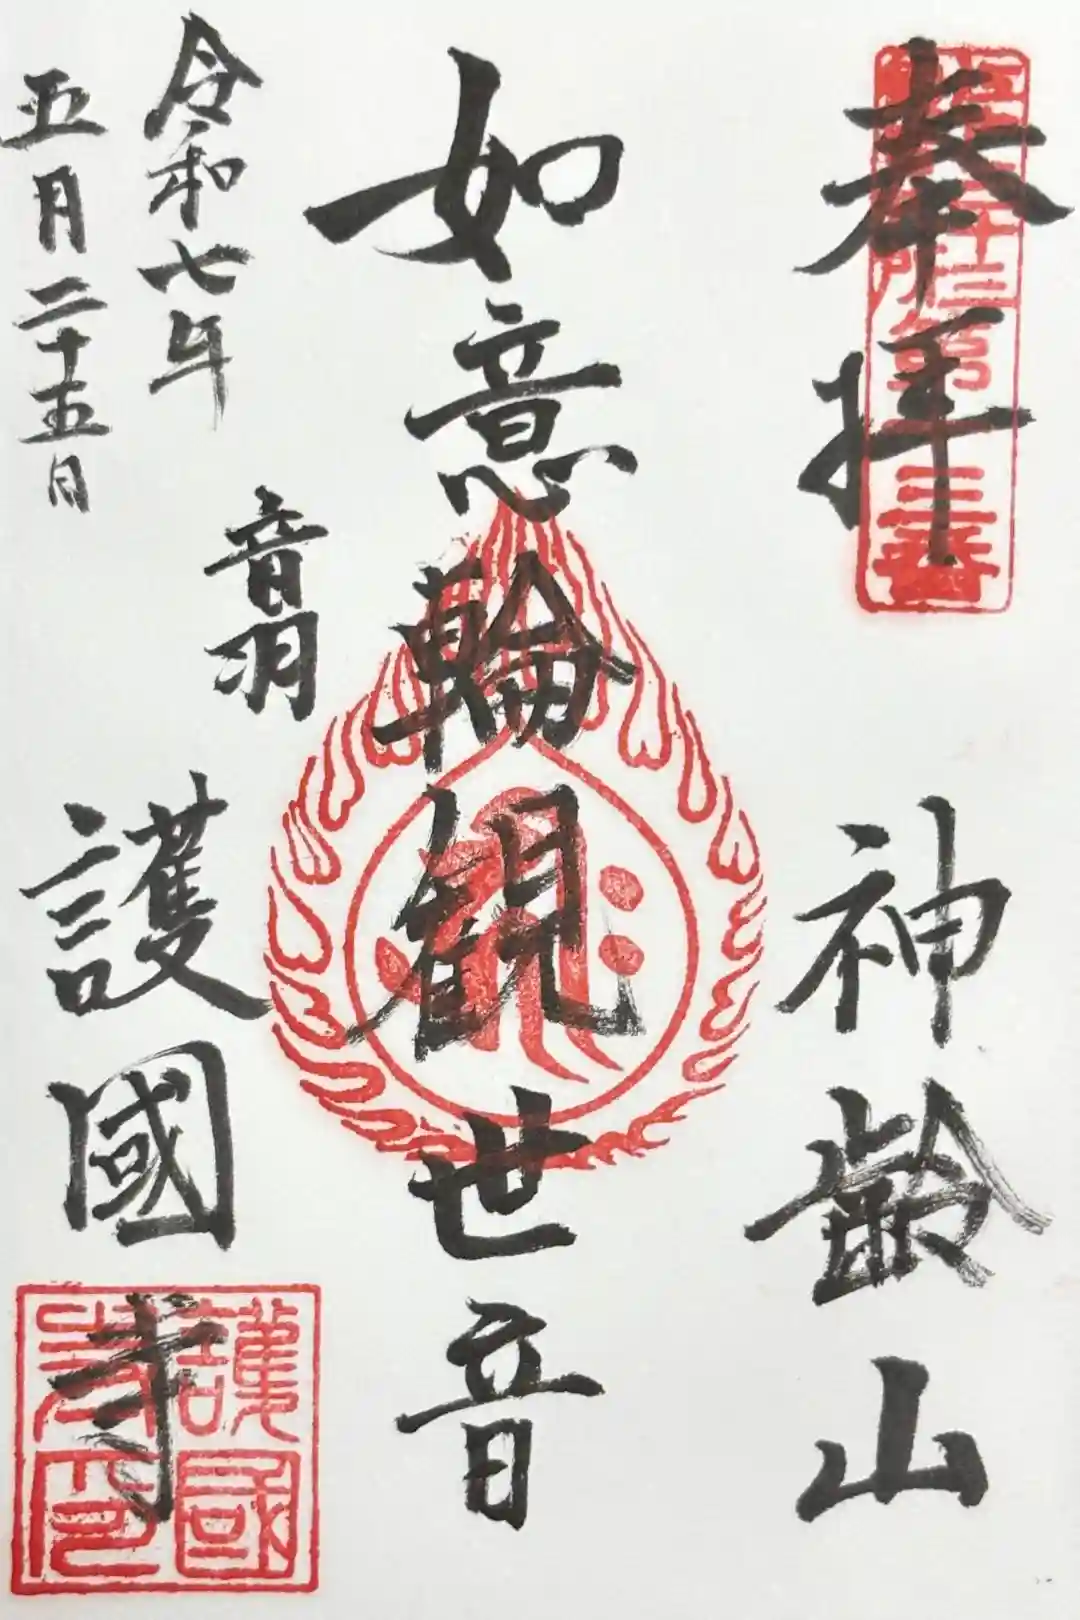 奉拝
神齢山
如意輪観世音
音羽
護國寺
令和七年
五月二十五日
三十三
第三番
護國寺印